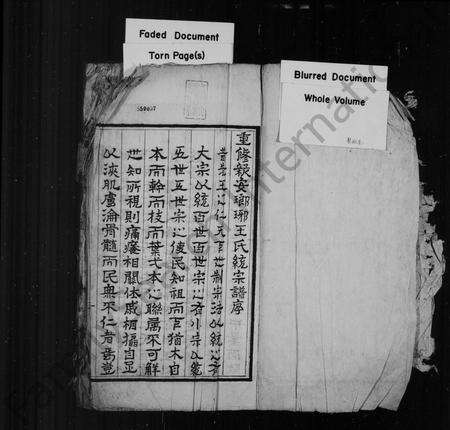 Faded Document
Torn Page(s)
Blurred Document
Whole Volume
重修新安瑯琊王氏統宗譜序
昔先王之仁天下也制宗法以統之有
大宗以統百世百世宗之有小宗以統
五世五世宗之使民知祖而下猶木自
本而幹而枝而葉弋本之聯屬不可解
也知所視則痛癢相關休戚相攝自足
以浹肌膚淪骨髓而民無不仁者焉